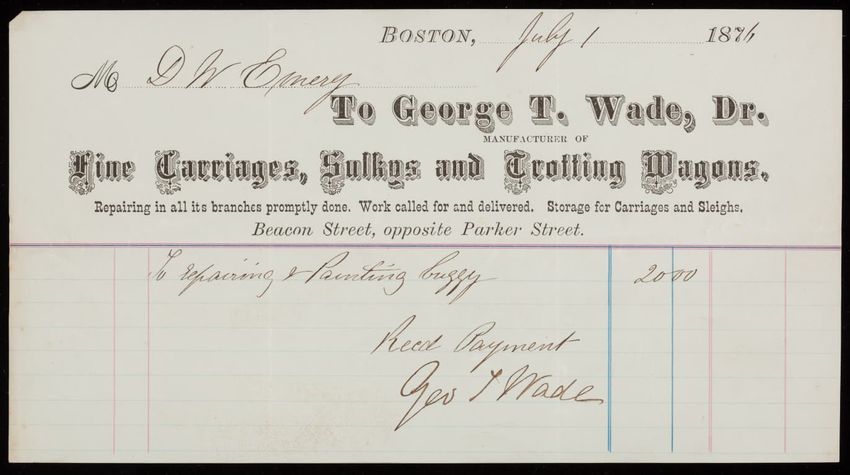 BOSTON, July 1 1876
M D W Emery
To George T. Wade, Dr.
MANUFACTURER OF
Fine Carriages, Sulkys and Trotting Wagons.
Repairing in all its branches promptly done. Work called for and delivered. Storage for Carriages and Sleighs.
Beacon Street, opposite Parker Street.
To repairing & Painting buggy 20 00
Recd Payment
Geo T Wade